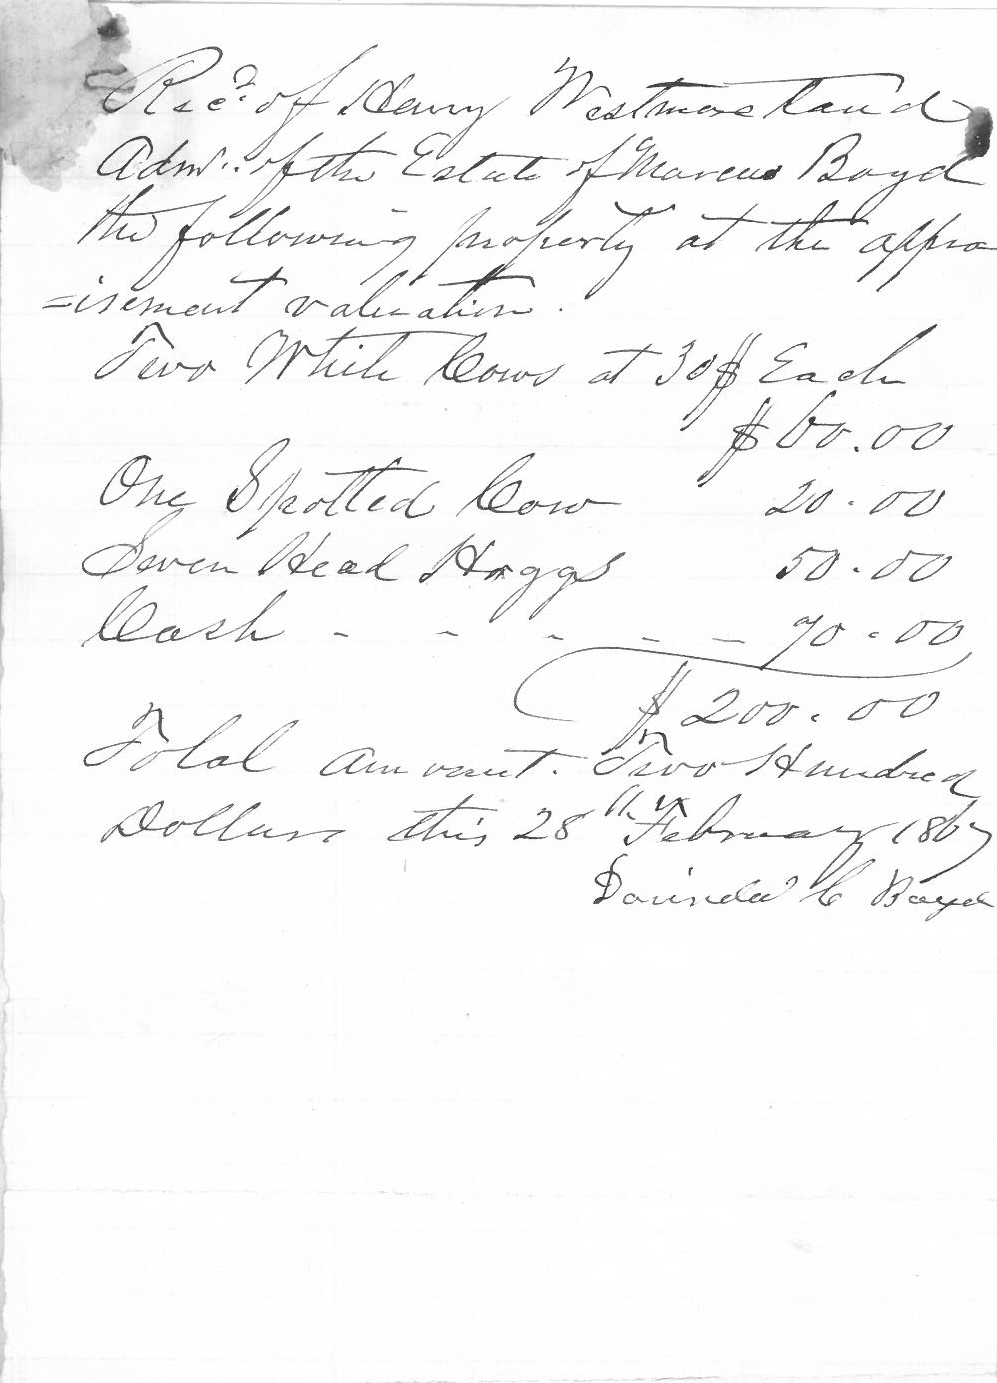 Recd. of Henry Westmoreland
Admr. of the Estate of Marcus Boyd
the following property at the appra
=isement valuation.
Two White Cows at 30$ Each
$60.00
One Spotted Cow 20.00
Seven Head Hoggs 50.00
Cash - - - - - 70.00
$200.00
Total amount. Two Hundred
Dollars this 28th February 1867
Dorinda C Boyd